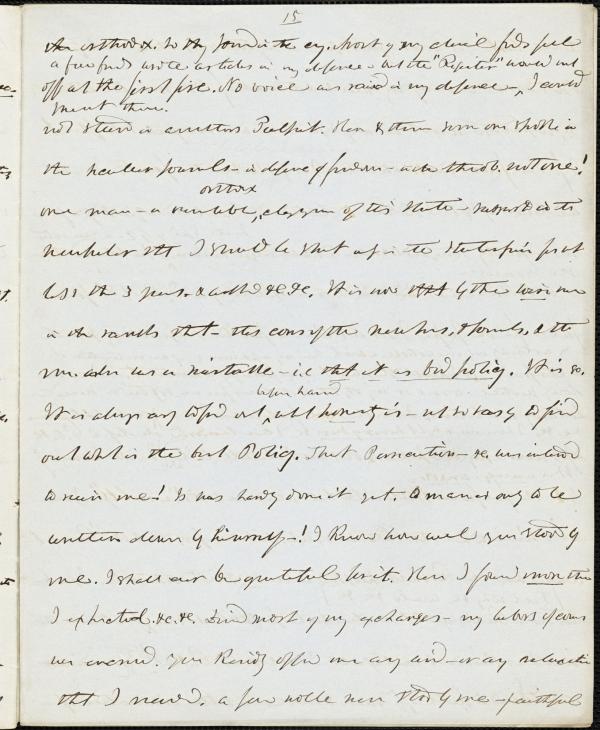 15
orthodox. So they joined in the cry. Most of my clerical friends fell
a few friends wrote articles in my defence - but the "Register" would not
off at the first fire. No voice was raised in my defence -, I could
insert them.
not stand in another's Pulpit. Here & there some one spoke in
the secular Journals - in defence of freedom - in the theol. not one!
orthox
one man - a venerable, clergyman of this State - in the
newspaper that I should be shut up in the State prison for not
less than 3 years. &c &c. It is now by the
in the ranks that - the concerning the newspapers, & Journals, & the
was a mistake - i.e. that it is bad policy. It is so.
before hand
It is always easy to find out, what honesty is - not so easy to find
out what is the best Policy. That Persecution - &c. was intended
to ruin me! It has hardly done it yet. a man is only to be
written down by himself -! I know how well you stood by
me. I shall ever be grateful for it. Here I found more than
I expected. &c. &c. And most of my exchanges - my labors of course
was increased. you kindly offered me any aid - or any relaxation
that I needed. a few noble men stood by me - faithful